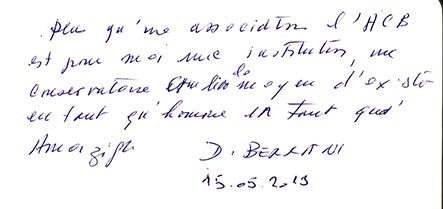 Plus qu'une association l'ACB
est pour moi une institution, une
Conservatoire de moyen d'existe
en tant qu'homme en tant qu'
Amazigh
D. BERRANI
15.05.2019